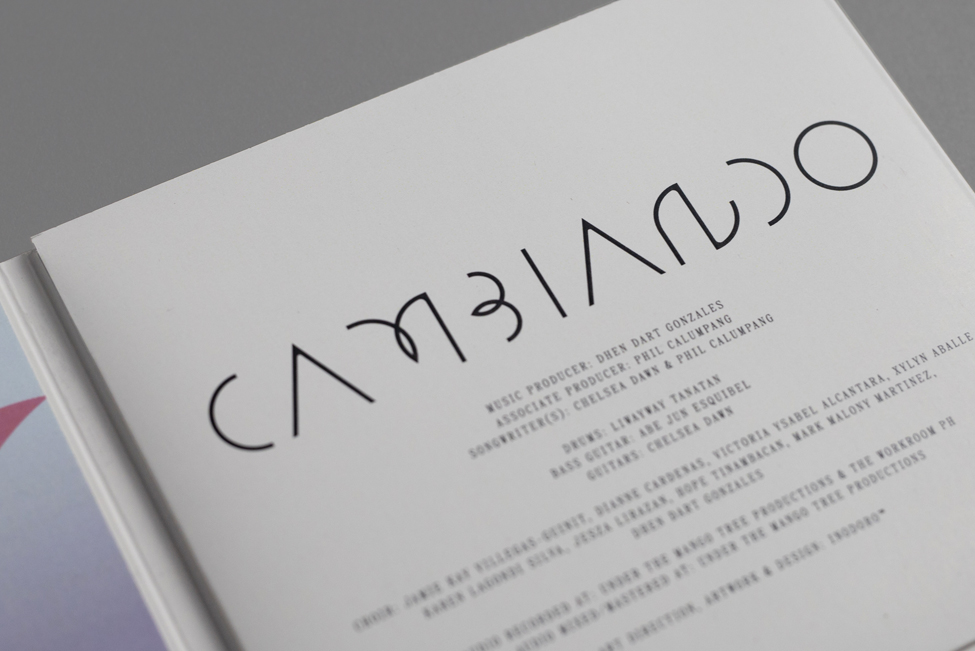 CAMBIANDO
MUSIC PRODUCER: DHEN DART GONZALES
ASSOCIATE PRODUCER: PHIL CALUMPANG
SONGWRITER(S): CHELSEA DAWN & PHIL CALUMPANG
DRUMS: LIWAYWAY TANATAN
BASS GUITAR: ABE JUN ESQUIBEL
GUITARS: CHELSEA DAWN
CHOIR: JAMIE MAY VILLEGAS-GUINIT, DIANNE CARDENAS, VICTORIA YSABEL ALCANTARA, XYLYN ABALLE
KAREN LAGONDI SILVA, JESZA LIRAZAN, HOPE TINAMBACAN, MARK MALONY MARTINEZ,
DHEN DART GONZALES
RECORDED AT: UNDER THE MANGO TREE PRODUCTIONS & THE WORKROOM PH
MIXED/MASTERED AT: UNDER THE MANGO TREE PRODUCTIONS
ART DIRECTION, ARTWORK & DESIGN: INODORO™